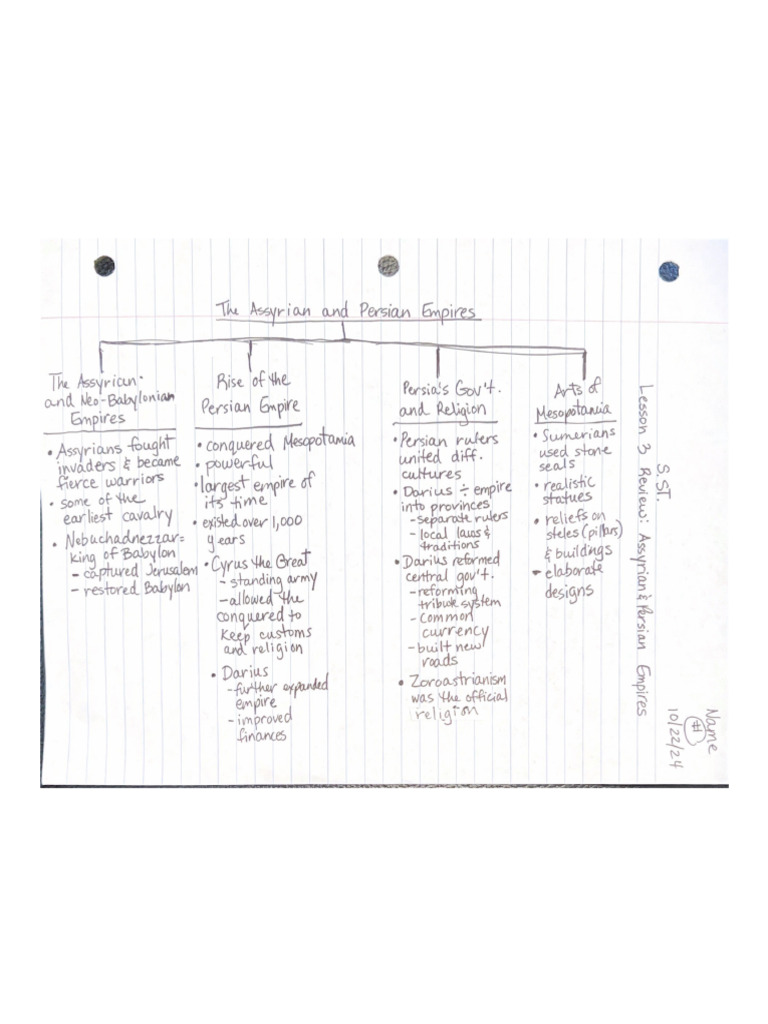 The Assyrian and Persian Empires
The Assyrian
and Neo-Babylonian
Empires
• Assyrians fought
invaders & became
fierce warriors
• some of the
earliest cavalry
• Nebuchadnezzar=
king of Babylon
- captured Jerusalem
- restored Babylon
Rise of the
Persian Empire
• conquered Mesopotamia
• powerful
• largest empire of
its time
• existed over 1,000
years
• Cyrus the Great
- standing army
- allowed the
conquered to
keep customs
and religion
• Darius
- further expanded
empire
- improved
finances
Persia's Gov't.
and Religion
• Persian rulers
united diff.
cultures
• Darius ÷ empire
into provinces
- separate rulers
- local laws &
traditions
• Darius reformed
central gov't.
- reforming
tribute system
- common
currency
- built new
roads
• Zoroastrianism
was the official
religion
Arts of
Mesopotamia
• Sumerians
used stone
seals
• realistic
statues
• reliefs on
steles (pillars)
& buildings
- elaborate
designs
Name
#
10/22/24
S.ST.
Lesson 3 Review: Assyrian & Persian Empires